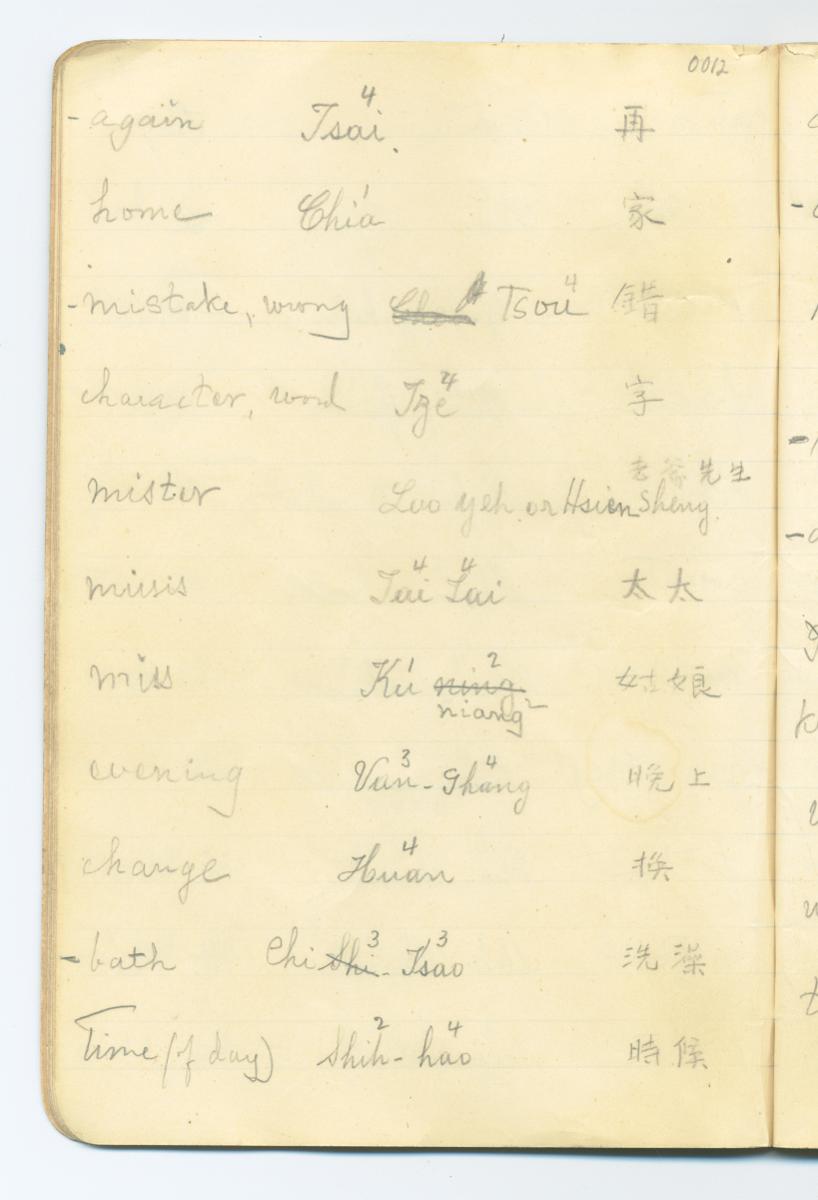 0012
- again Tsai⁴. 再
home Chia¹ 家
- mistake, wrong Tsou⁴ 錯
character, word Tze⁴ 字
老爺 先生
mister Lao yeh or Hsien Sheng
missis Tai⁴ Tai⁴ 太太
miss Ku¹ ning² 姑娘
niang²
evening Van³ - Shang⁴ 晚上
change Huan⁴ 換
- bath Chi Shi³ - Tsao³ 洗澡
Time (of day) Shih² - hao⁴ 時候